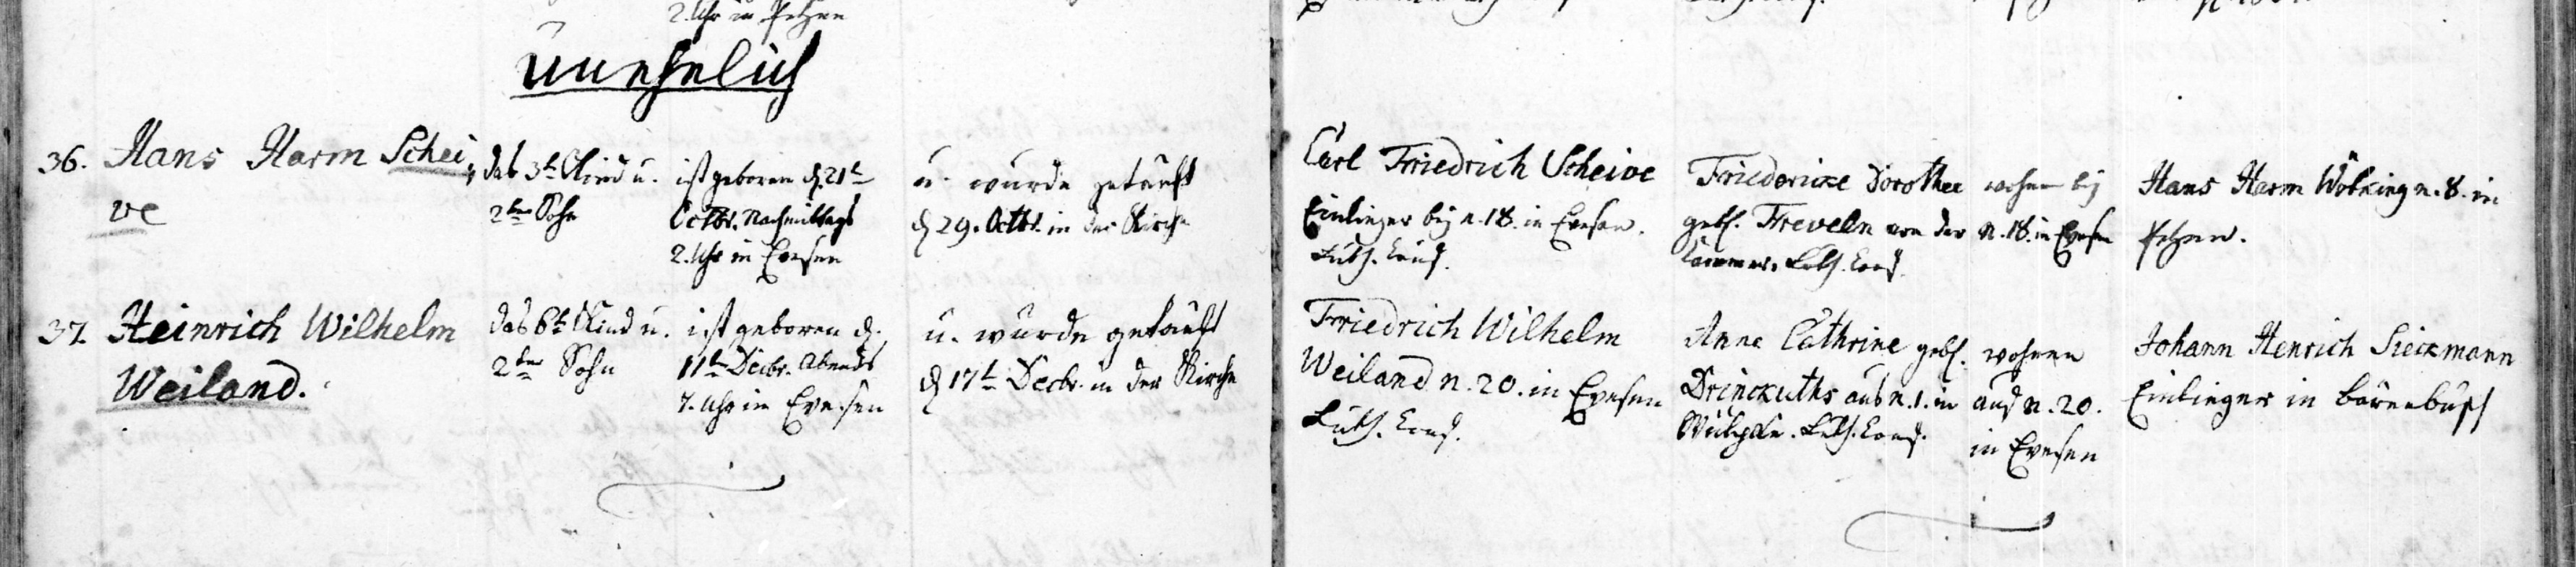 2. Uhr in Petzen
unehelich
36. Hans Harm Schei,
ve
das 3te Kind u.
2ter Sohn
ist geboren d. 21te
Octbr. Nachmittags
2. Uhr in Evesen
u. wurde getauft
d 29. Octbr. in der Kirche
Carl Friedrich Scheive
Einlieger bey n. 18. in Evesen.
Luth. Conf.
Friedericke Dorothee
geb. Treveln von der
Luth. Conf.
wohnen bey
n. 18. in Evesen
Hans Harm Wölking n. 8. in
Petzen.
37. Heinrich Wilhelm
Weiland.
das 6te Kind u.
2ter Sohn
ist geboren d.
11te Decbr. Abends
7. Uhr in Evesen
u. wurde getauft
d 17te Decbr. in der Kirche
Friedrich Wilhelm
Weiland n. 20. in Evesen
Luth. Conf.
Anne Cathrine geb.
Drinckuths aus n. 1. in
Luth. Conf.
wohnen
auf n. 20.
in Evesen
Johann Henrich Sieckmann
Einlieger in Bärenbusch